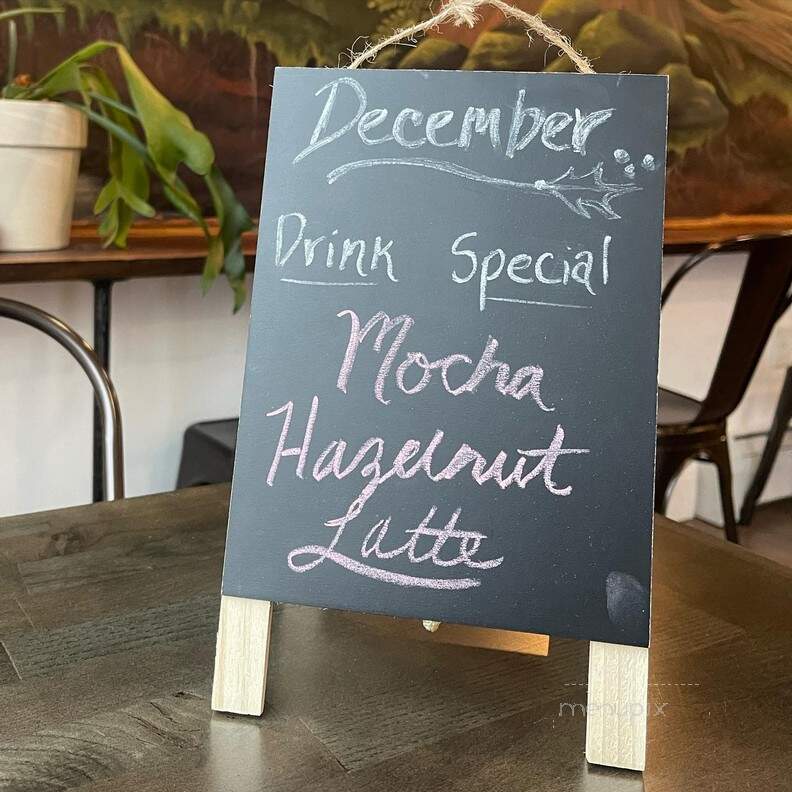 December
Drink Special
Mocha
Hazelnut
Latte
menupix